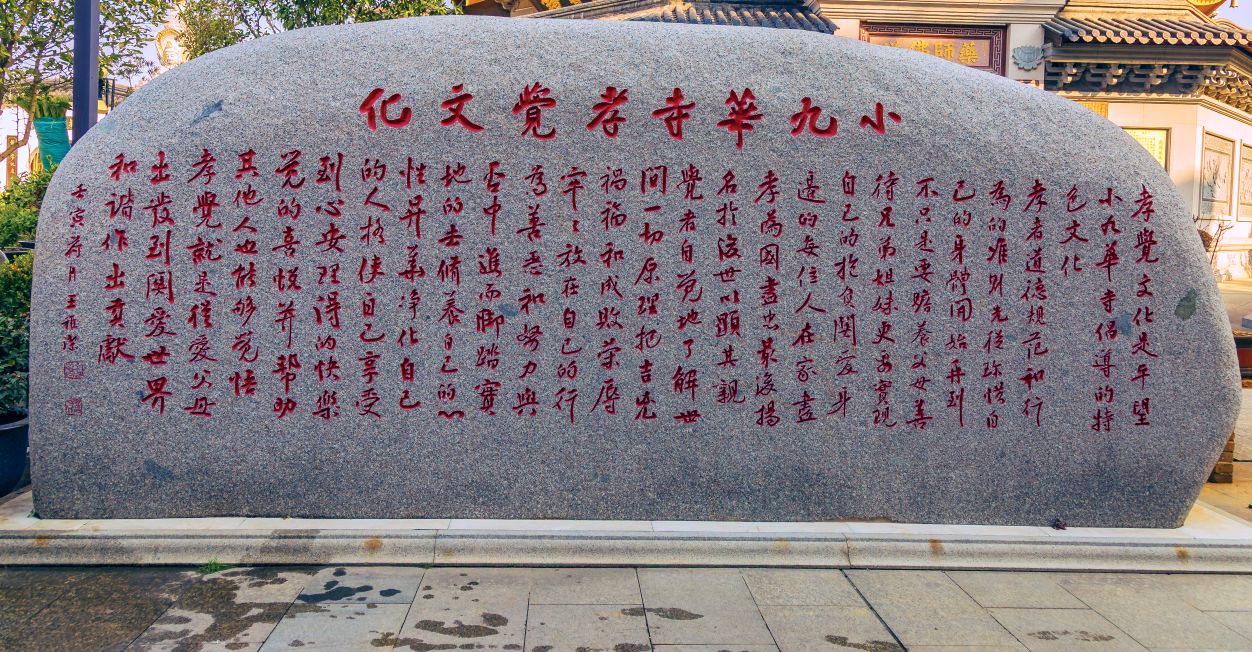 藥師
小九華寺孝覺文化
孝覺文化是平望
小九華寺倡導的特
色文化
孝者道德規范和行
為的准則先從珍惜自
己的身體開始再到
不只是要贍養父母善
待兄弟姐妹更要實現
自己的抱負關愛身
邊的每位人在家盡
孝為國盡忠最後揚
名於後世以顯其親
覺者自覺地了解世
間一切原理把吉兇
禍福和成敗榮辱
牢々放在自己的行
為善惡和努力與
否中進而腳踏實
地的去修養自己的心
性昇華净化自己
的人格使自己享受
到心安理得的快樂
覺的喜悅并幫助
其他人也能夠覺悟
孝覺就是從愛父母
出發到關愛世界
和諧作出貢獻
壬寅荷月王